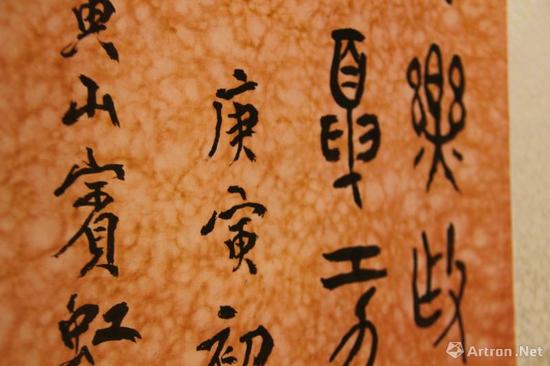 樂政
工
庚寅初
黄山賓虹
Artron.Net